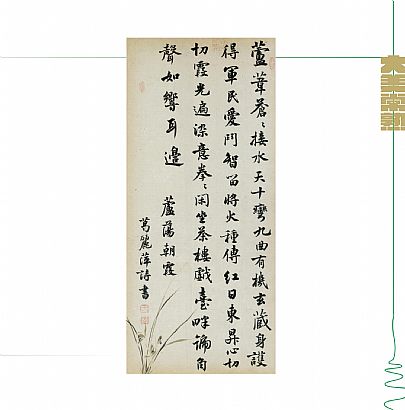 蘆葦蒼〻接水天十彎九曲有機玄藏身護
得軍民愛鬥智留將火種傳紅日東昇心切
切霞光遍染意拳〻閑坐茶樓戲臺畔號角
聲如響耳邊 蘆蕩朝霞
葛麗萍詩書
大美常熟